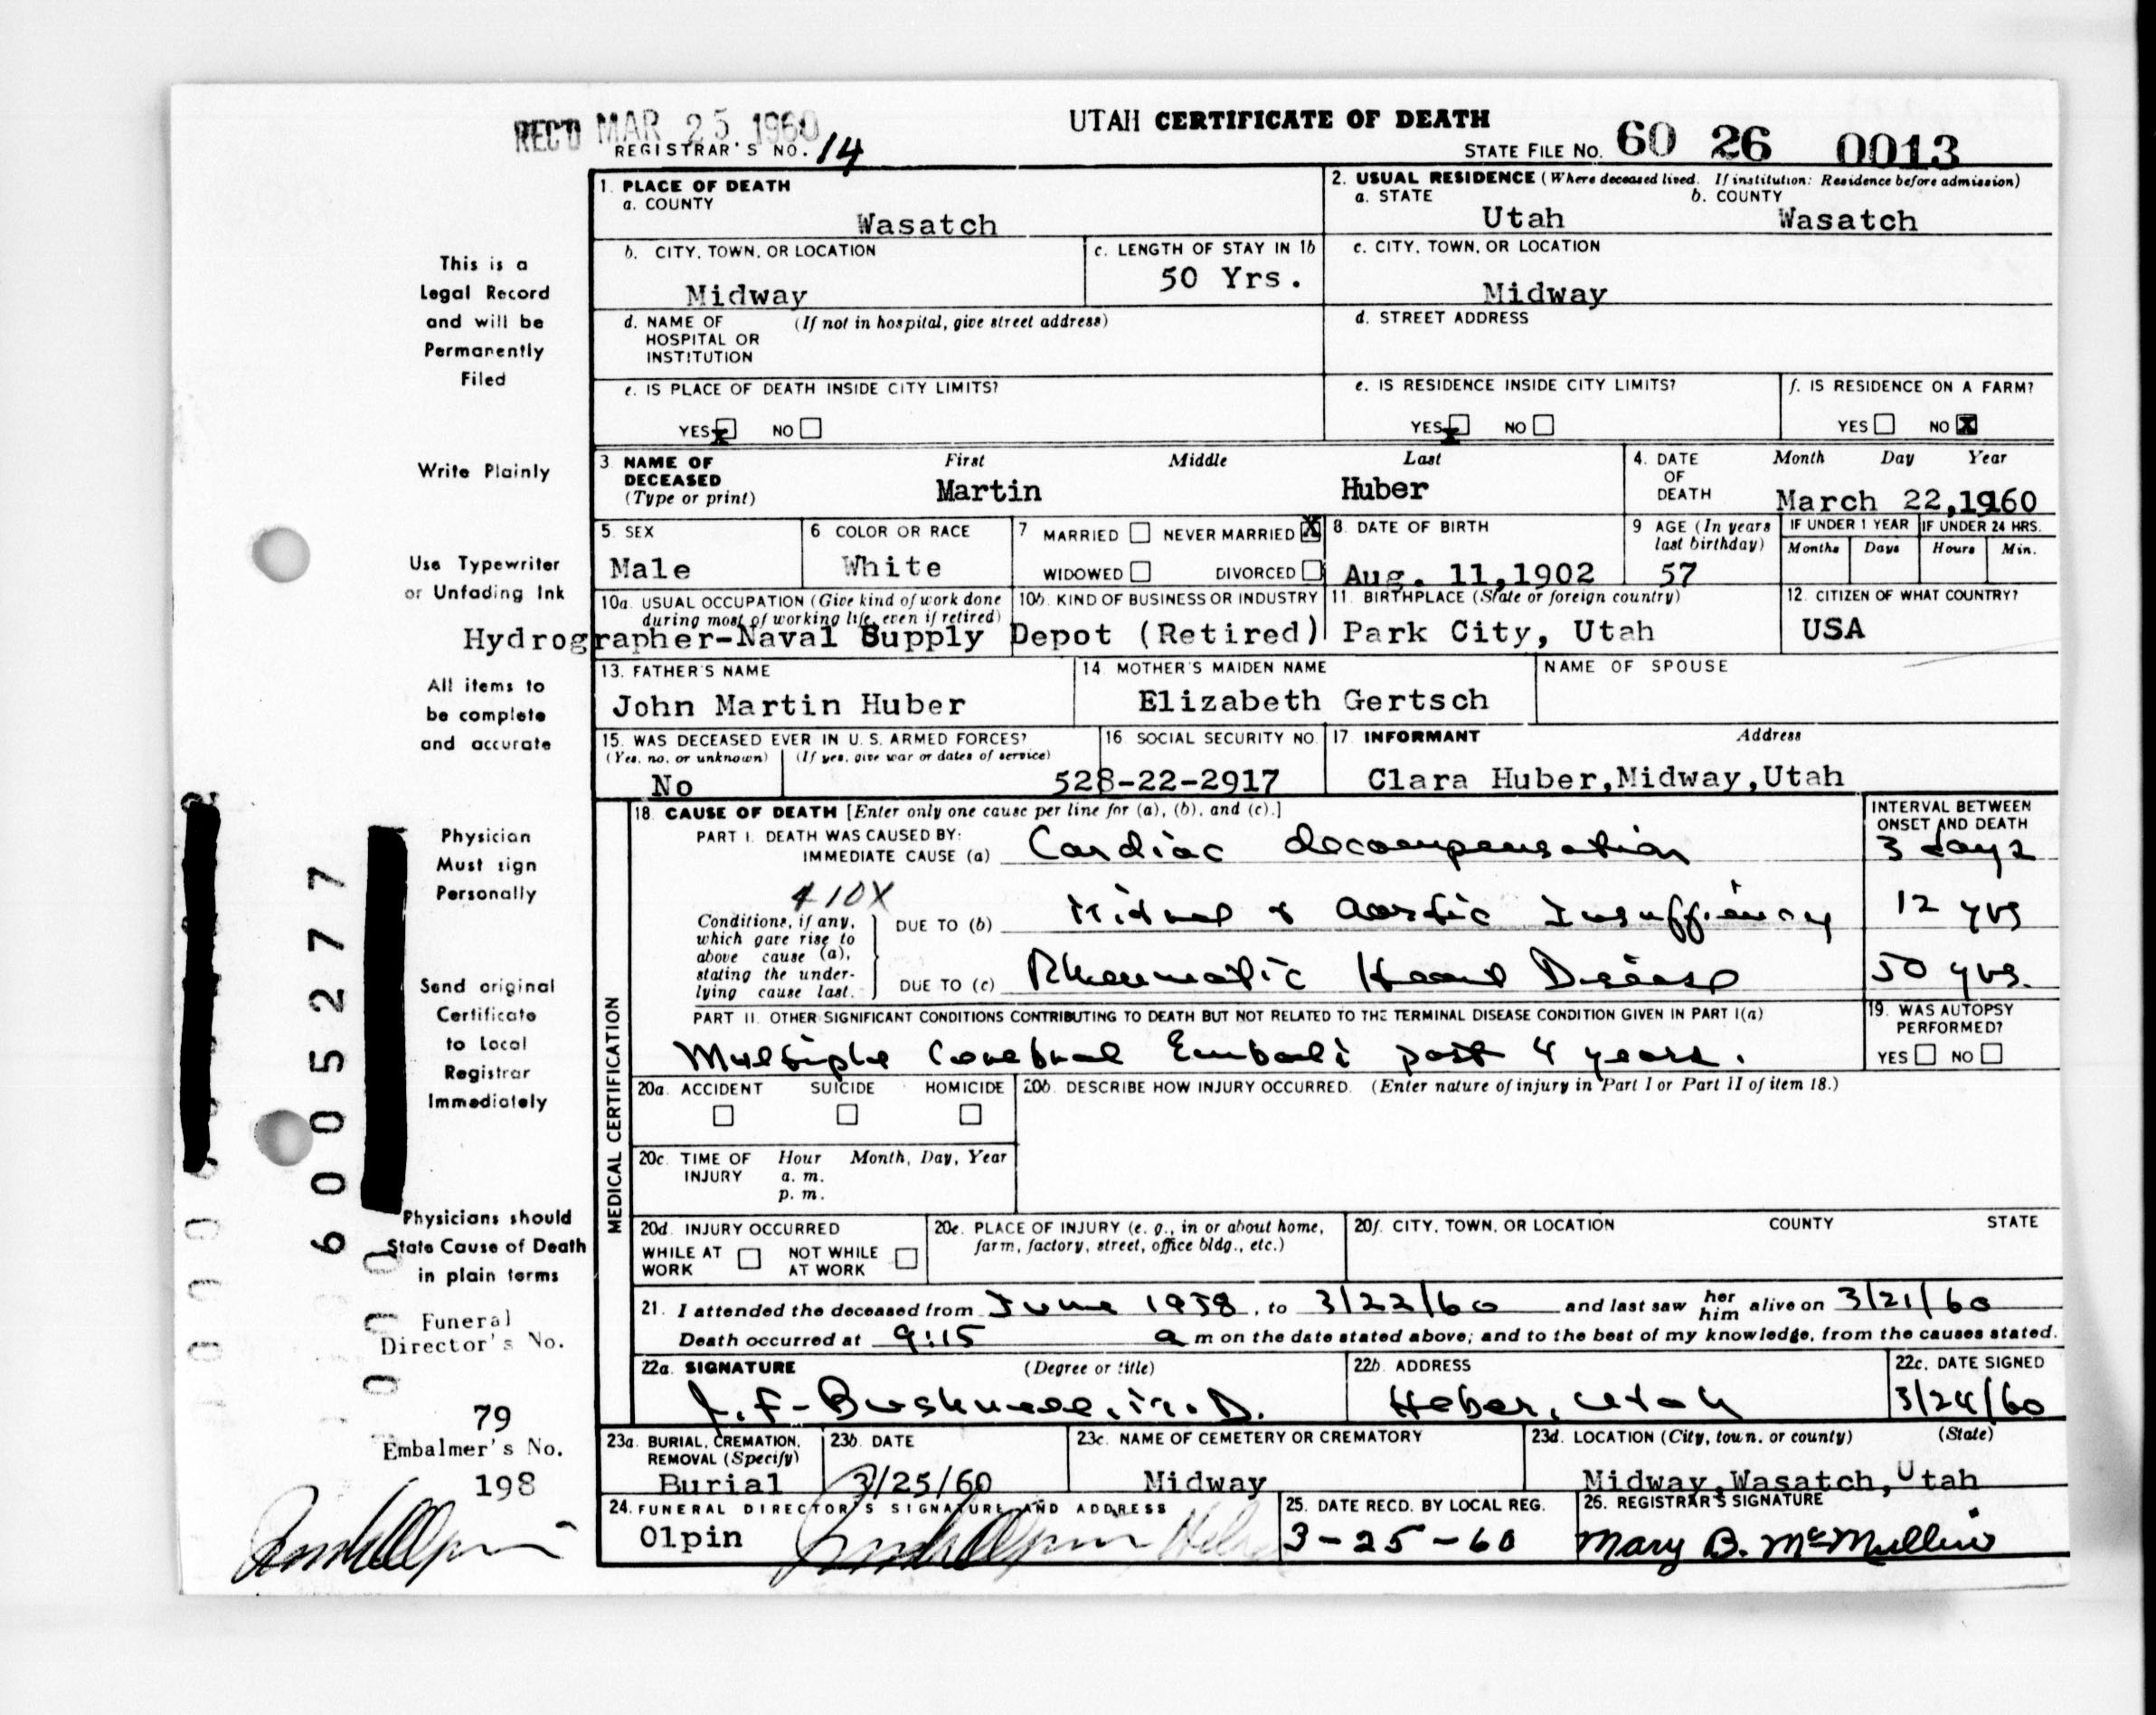 REC'D MAR 25 1960
UTAH CERTIFICATE OF DEATH
REGISTRAR'S NO. 14
STATE FILE NO. 60 26 0013
1. PLACE OF DEATH
a. COUNTY
Wasatch
2. USUAL RESIDENCE (Where deceased lived. If institution: Residence before admission)
a. STATE b. COUNTY
Utah Wasatch
b. CITY, TOWN, OR LOCATION
Midway
c. LENGTH OF STAY IN 1b
50 Yrs.
c. CITY, TOWN, OR LOCATION
Midway
d. NAME OF (If not in hospital, give street address)
HOSPITAL OR
INSTITUTION
d. STREET ADDRESS
e. IS PLACE OF DEATH INSIDE CITY LIMITS?
YES X NO
e. IS RESIDENCE INSIDE CITY LIMITS?
YES X NO
f. IS RESIDENCE ON A FARM?
YES NO X
3. NAME OF DECEASED (Type or print)
First Middle Last
Martin Huber
4. DATE OF DEATH
Month Day Year
March 22,1960
5. SEX
Male
6 COLOR OR RACE
White
7 MARRIED NEVER MARRIED X
WIDOWED DIVORCED
8. DATE OF BIRTH
Aug. 11,1902
9 AGE (In years last birthday)
57
IF UNDER 1 YEAR IF UNDER 24 HRS.
Months Days Hours Min.
10a. USUAL OCCUPATION (Give kind of work done
during most of working life, even if retired)
10b. KIND OF BUSINESS OR INDUSTRY
Hydrographer-Naval Supply Depot (Retired)
11. BIRTHPLACE (State or foreign country)
Park City, Utah
12. CITIZEN OF WHAT COUNTRY?
USA
13. FATHER'S NAME
John Martin Huber
14 MOTHER'S MAIDEN NAME
Elizabeth Gertsch
NAME OF SPOUSE
15. WAS DECEASED EVER IN U. S. ARMED FORCES?
(Yes, no, or unknown) (If yes, give war or dates of service)
No
16. SOCIAL SECURITY NO.
528-22-2917
17. INFORMANT Address
Clara Huber,Midway,Utah
MEDICAL CERTIFICATION
18. CAUSE OF DEATH [Enter only one cause per line for (a), (b), and (c).]
INTERVAL BETWEEN
ONSET AND DEATH
PART I. DEATH WAS CAUSED BY:
IMMEDIATE CAUSE (a) Cardiac decompensation 3 days
410X
Conditions, if any,
which gave rise to
above cause (a),
stating the under-
lying cause last.
DUE TO (b) Mitral & Aortic Insufficiency 12 yrs
DUE TO (c) Rheumatic Heart Disease 50 yrs.
PART II. OTHER SIGNIFICANT CONDITIONS CONTRIBUTING TO DEATH BUT NOT RELATED TO THE TERMINAL DISEASE CONDITION GIVEN IN PART I(a)
Multiple Cerebral Emboli past 4 years.
19. WAS AUTOPSY
PERFORMED?
YES NO
20a. ACCIDENT SUICIDE HOMICIDE
20b. DESCRIBE HOW INJURY OCCURRED. (Enter nature of injury in Part I or Part II of item 18.)
20c. TIME OF INJURY Hour Month, Day, Year
a. m.
p. m.
20d. INJURY OCCURRED
WHILE AT WORK NOT WHILE AT WORK
20e. PLACE OF INJURY (e. g., in or about home,
farm, factory, street, office bldg., etc.)
20f. CITY, TOWN, OR LOCATION COUNTY STATE
21. I attended the deceased from June 1958, to 3/22/60 and last saw her him alive on 3/21/60
Death occurred at 9:15 a m on the date stated above; and to the best of my knowledge, from the causes stated.
22a. SIGNATURE (Degree or title)
22b. ADDRESS
Heber, Utah
22c. DATE SIGNED
3/24/60
23a. BURIAL, CREMATION,
REMOVAL (Specify)
Burial
23b. DATE
3/25/60
23c. NAME OF CEMETERY OR CREMATORY
Midway
23d. LOCATION (City, town, or county) (State)
Midway,Wasatch,Utah
24. FUNERAL DIRECTOR'S SIGNATURE AND ADDRESS
Olpin
25. DATE RECD. BY LOCAL REG.
3-25-60
26. REGISTRAR'S SIGNATURE
Mary B. McMullin
This is a
Legal Record
and will be
Permanently
Filed
Write Plainly
Use Typewriter
or Unfading Ink
All items to
be complete
and accurate
Physician
Must sign
Personally
Send original
Certificate
to Local
Registrar
Immediately
Physicians should
State Cause of Death
in plain terms
Funeral
Director's No.
79
Embalmer's No.
198
6005277